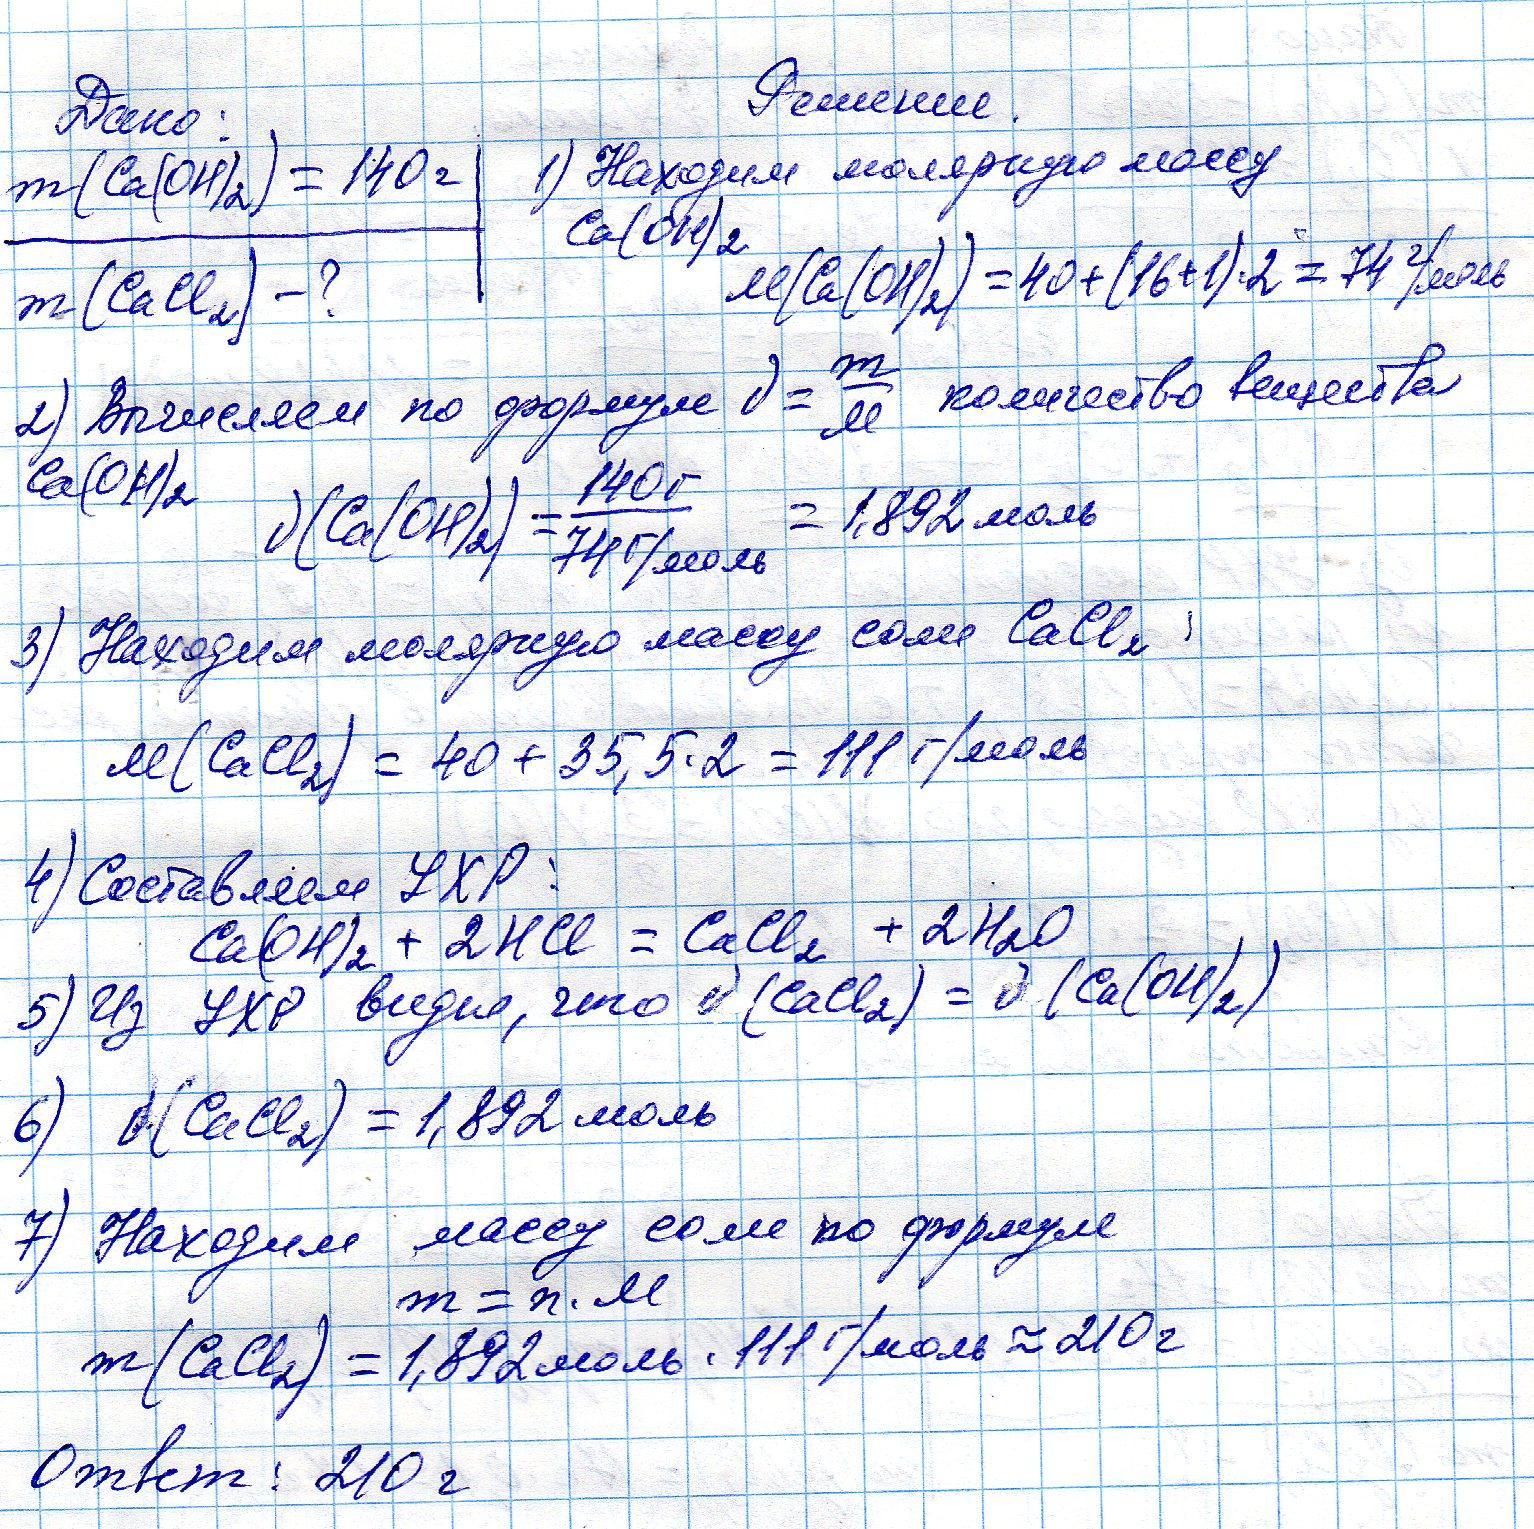 Дано:
m(Ca(OH)₂) = 140 г
m(CaCl₂) – ?
Решение.
1) Находим молярную массу
Ca(OH)₂
M(Ca(OH)₂) = 40 + (16+1)·2 = 74 г/моль
2) Вычисляем по формуле ν = m/M количество вещества
Ca(OH)₂
ν(Ca(OH)₂) = 140 г / 74 г/моль = 1,892 моль
3) Находим молярную массу соли CaCl₂:
M(CaCl₂) = 40 + 35,5·2 = 111 г/моль
4) Составляем УХР:
Ca(OH)₂ + 2HCl = CaCl₂ + 2H₂O
5) Из УХР видно, что ν(CaCl₂) = ν(Ca(OH)₂)
6) ν(CaCl₂) = 1,892 моль
7) Находим массу соли по формуле
m = n·M
m(CaCl₂) = 1,892 моль · 111 г/моль ≈ 210 г
Ответ: 210 г